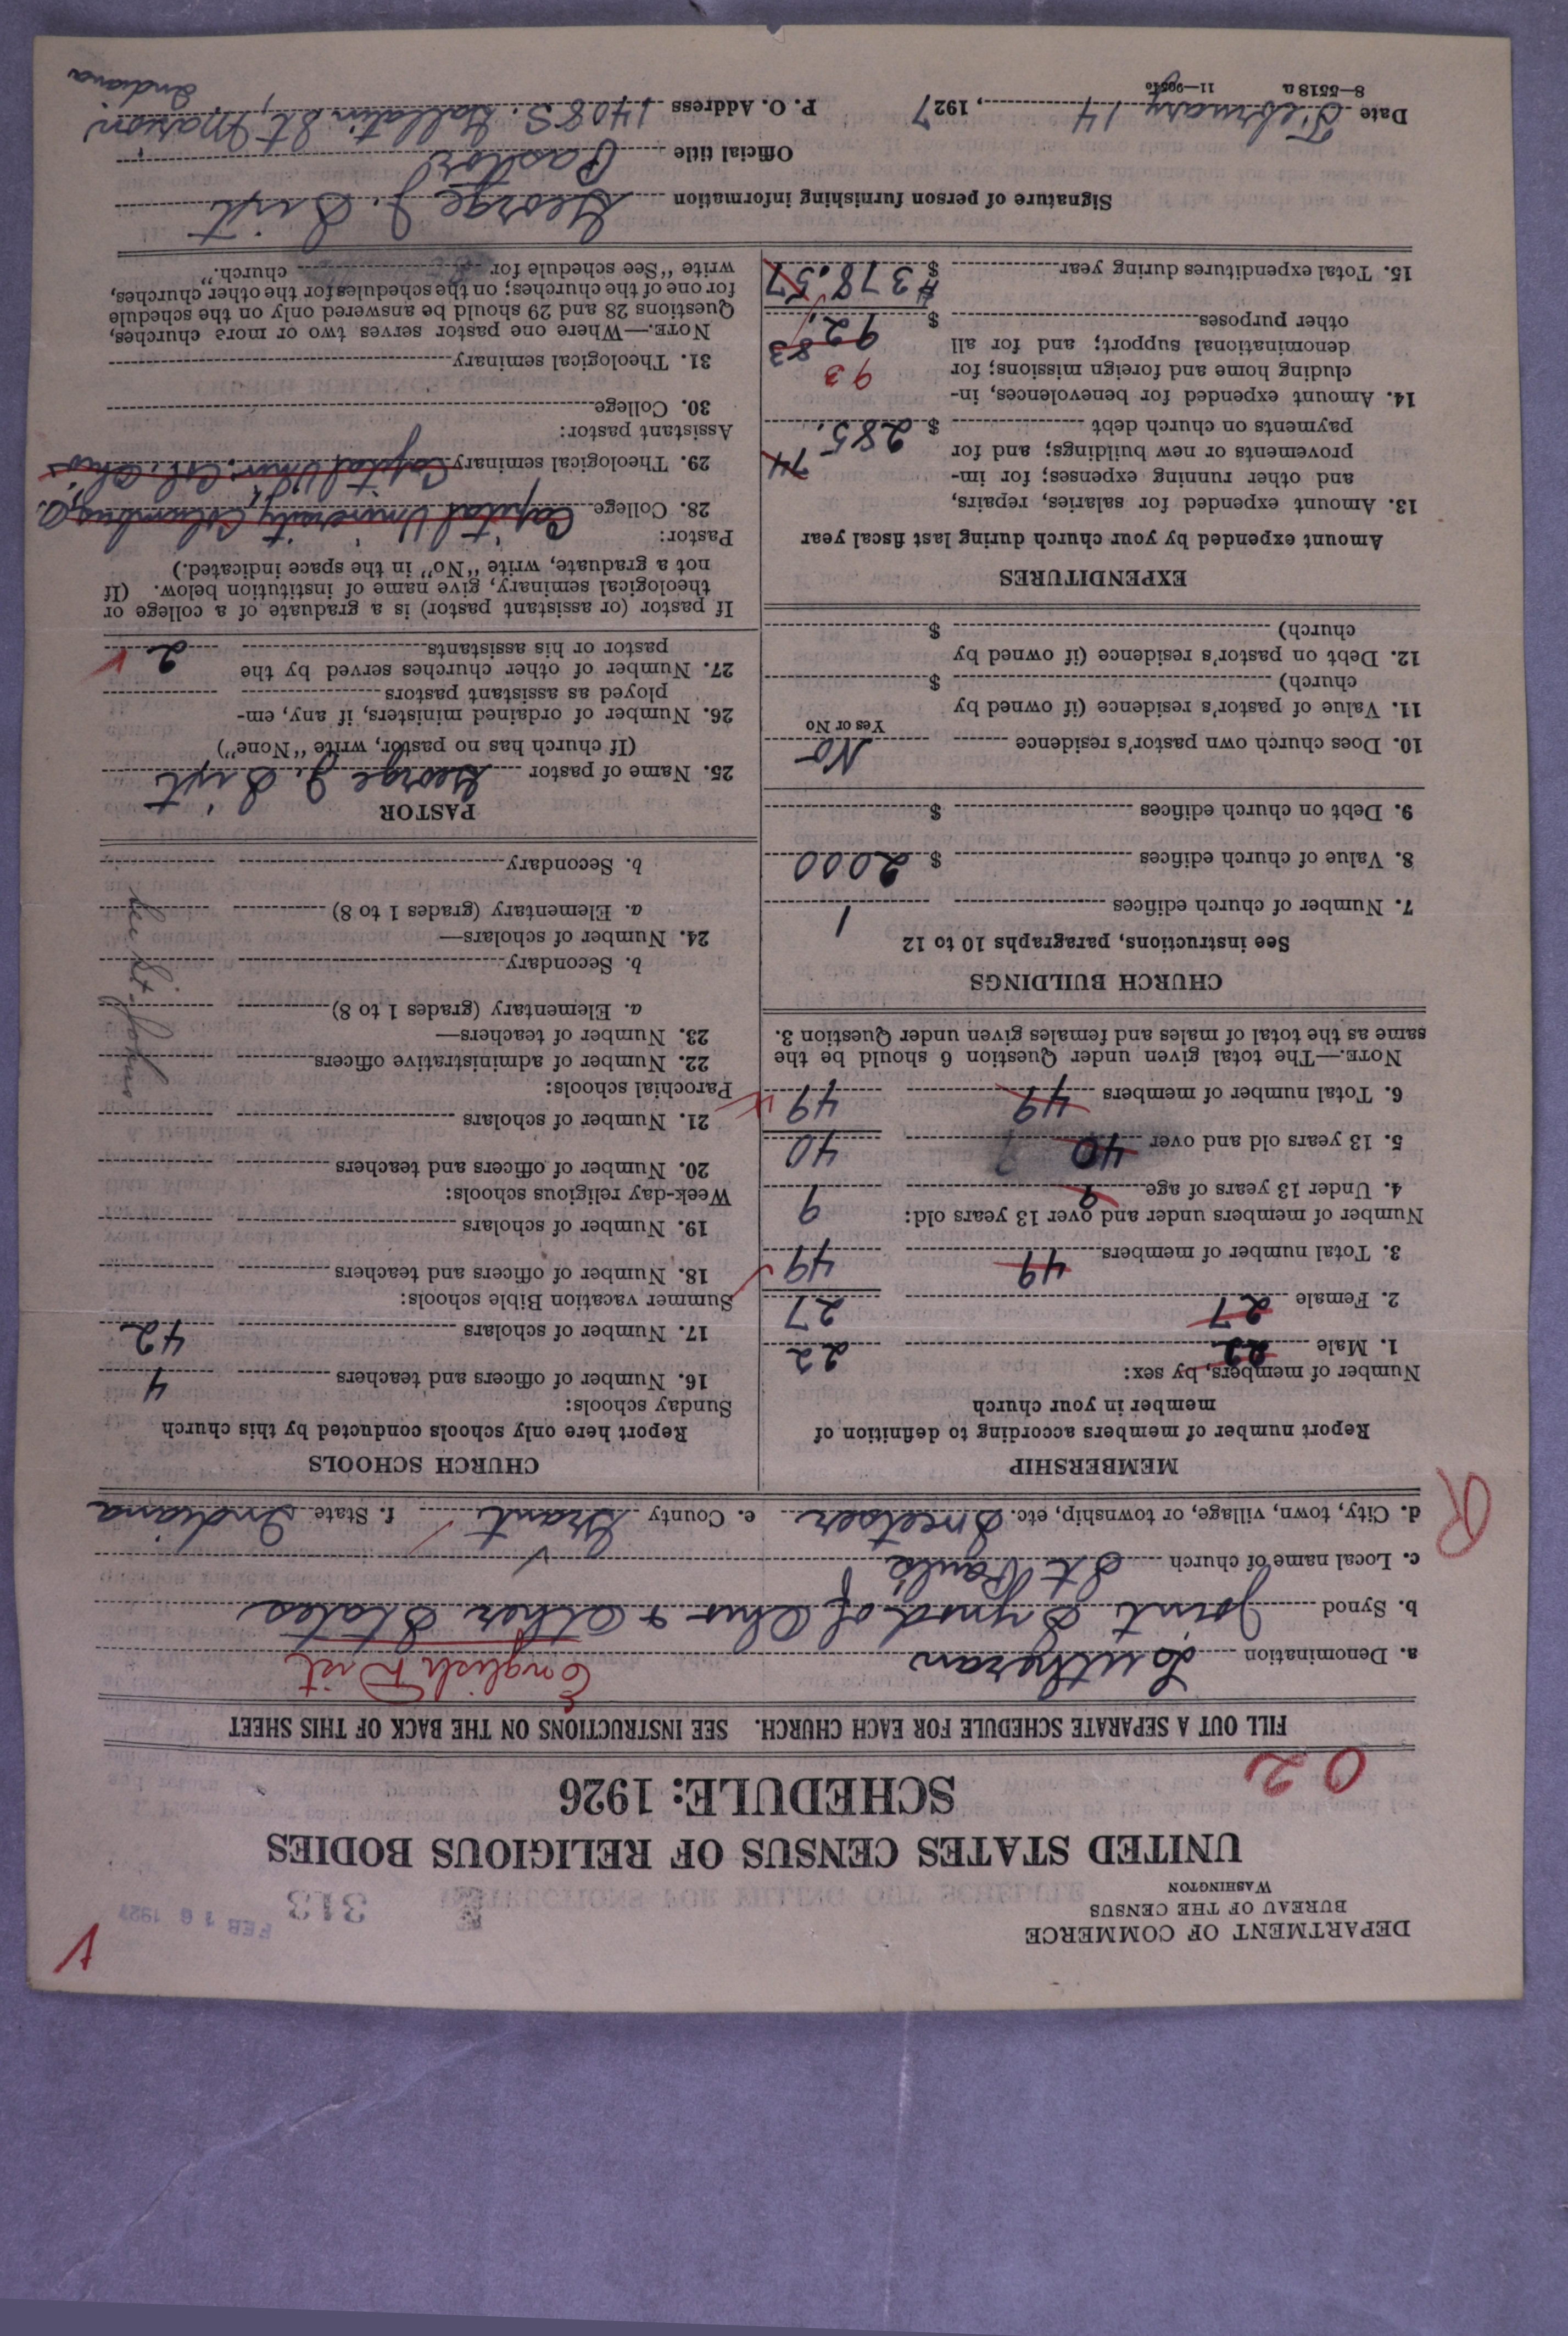 DEPARTMENT OF COMMERCE
BUREAU OF THE CENSUS
WASHINGTON
313
FEB 16 1927
UNITED STATES CENSUS OF RELIGIOUS BODIES
SCHEDULE: 1926
02
FILL OUT A SEPARATE SCHEDULE FOR EACH CHURCH. SEE INSTRUCTIONS ON THE BACK OF THIS SHEET
a. Denomination Lutheran English Dist
b. Synod Joint Synod of Ohio + Other States
c. Local name of church St Pauls
d. City, town, village, or township, etc. Sweetser e. County Grant f. State Indiana
R
MEMBERSHIP
Report number of members according to definition of
member in your church
Number of members, by sex:
1. Male 22 22
2. Female 27 27
3. Total number of members 49 49
Number of members under and over 13 years old:
4. Under 13 years of age 9 9
5. 13 years old and over 40 40
6. Total number of members 49 49
NOTE.—The total given under Question 6 should be the
same as the total of males and females given under Question 3.
CHURCH BUILDINGS
See instructions, paragraphs 10 to 12
7. Number of church edifices 1
8. Value of church edifices $ 2000
9. Debt on church edifices $
10. Does church own pastor's residence No
Yes or No
11. Value of pastor's residence (if owned by
church) $
12. Debt on pastor's residence (if owned by
church) $
EXPENDITURES
Amount expended by your church during last fiscal year
13. Amount expended for salaries, repairs,
and other running expenses; for im-
provements or new buildings; and for
payments on church debt $ 285.74
14. Amount expended for benevolences, in-
cluding home and foreign missions; for 93
denominational support; and for all
other purposes $ 92.83
15. Total expenditures during year $ #378.57
CHURCH SCHOOLS
Report here only schools conducted by this church
Sunday schools:
16. Number of officers and teachers 4
17. Number of scholars 42
Summer vacation Bible schools:
18. Number of officers and teachers
19. Number of scholars
Week-day religious schools:
20. Number of officers and teachers
21. Number of scholars
Parochial schools:
22. Number of administrative officers
23. Number of teachers—
a. Elementary (grades 1 to 8)
b. Secondary
24. Number of scholars—
a. Elementary (grades 1 to 8)
b. Secondary
PASTOR
25. Name of pastor George J. Sixt
(If church has no pastor, write "None")
26. Number of ordained ministers, if any, em-
ployed as assistant pastors
27. Number of other churches served by the
pastor or his assistants 2
If pastor (or assistant pastor) is a graduate of a college or
theological seminary, give name of institution below. (If
not a graduate, write "No" in the space indicated.)
Pastor:
28. College Capital University Columbus, O.
29. Theological seminary Capital Univ. Col. Ohio
Assistant pastor:
30. College
31. Theological seminary
NOTE.—Where one pastor serves two or more churches,
Questions 28 and 29 should be answered only on the schedule
for one of the churches; on the schedules for the other churches,
write "See schedule for church."
Signature of person furnishing information George J. Sixt
Official title Pastor
Date February 14, 1927 P. O. Address 1408 S. Gallatin St, Marion
Indiana
8—5518 a